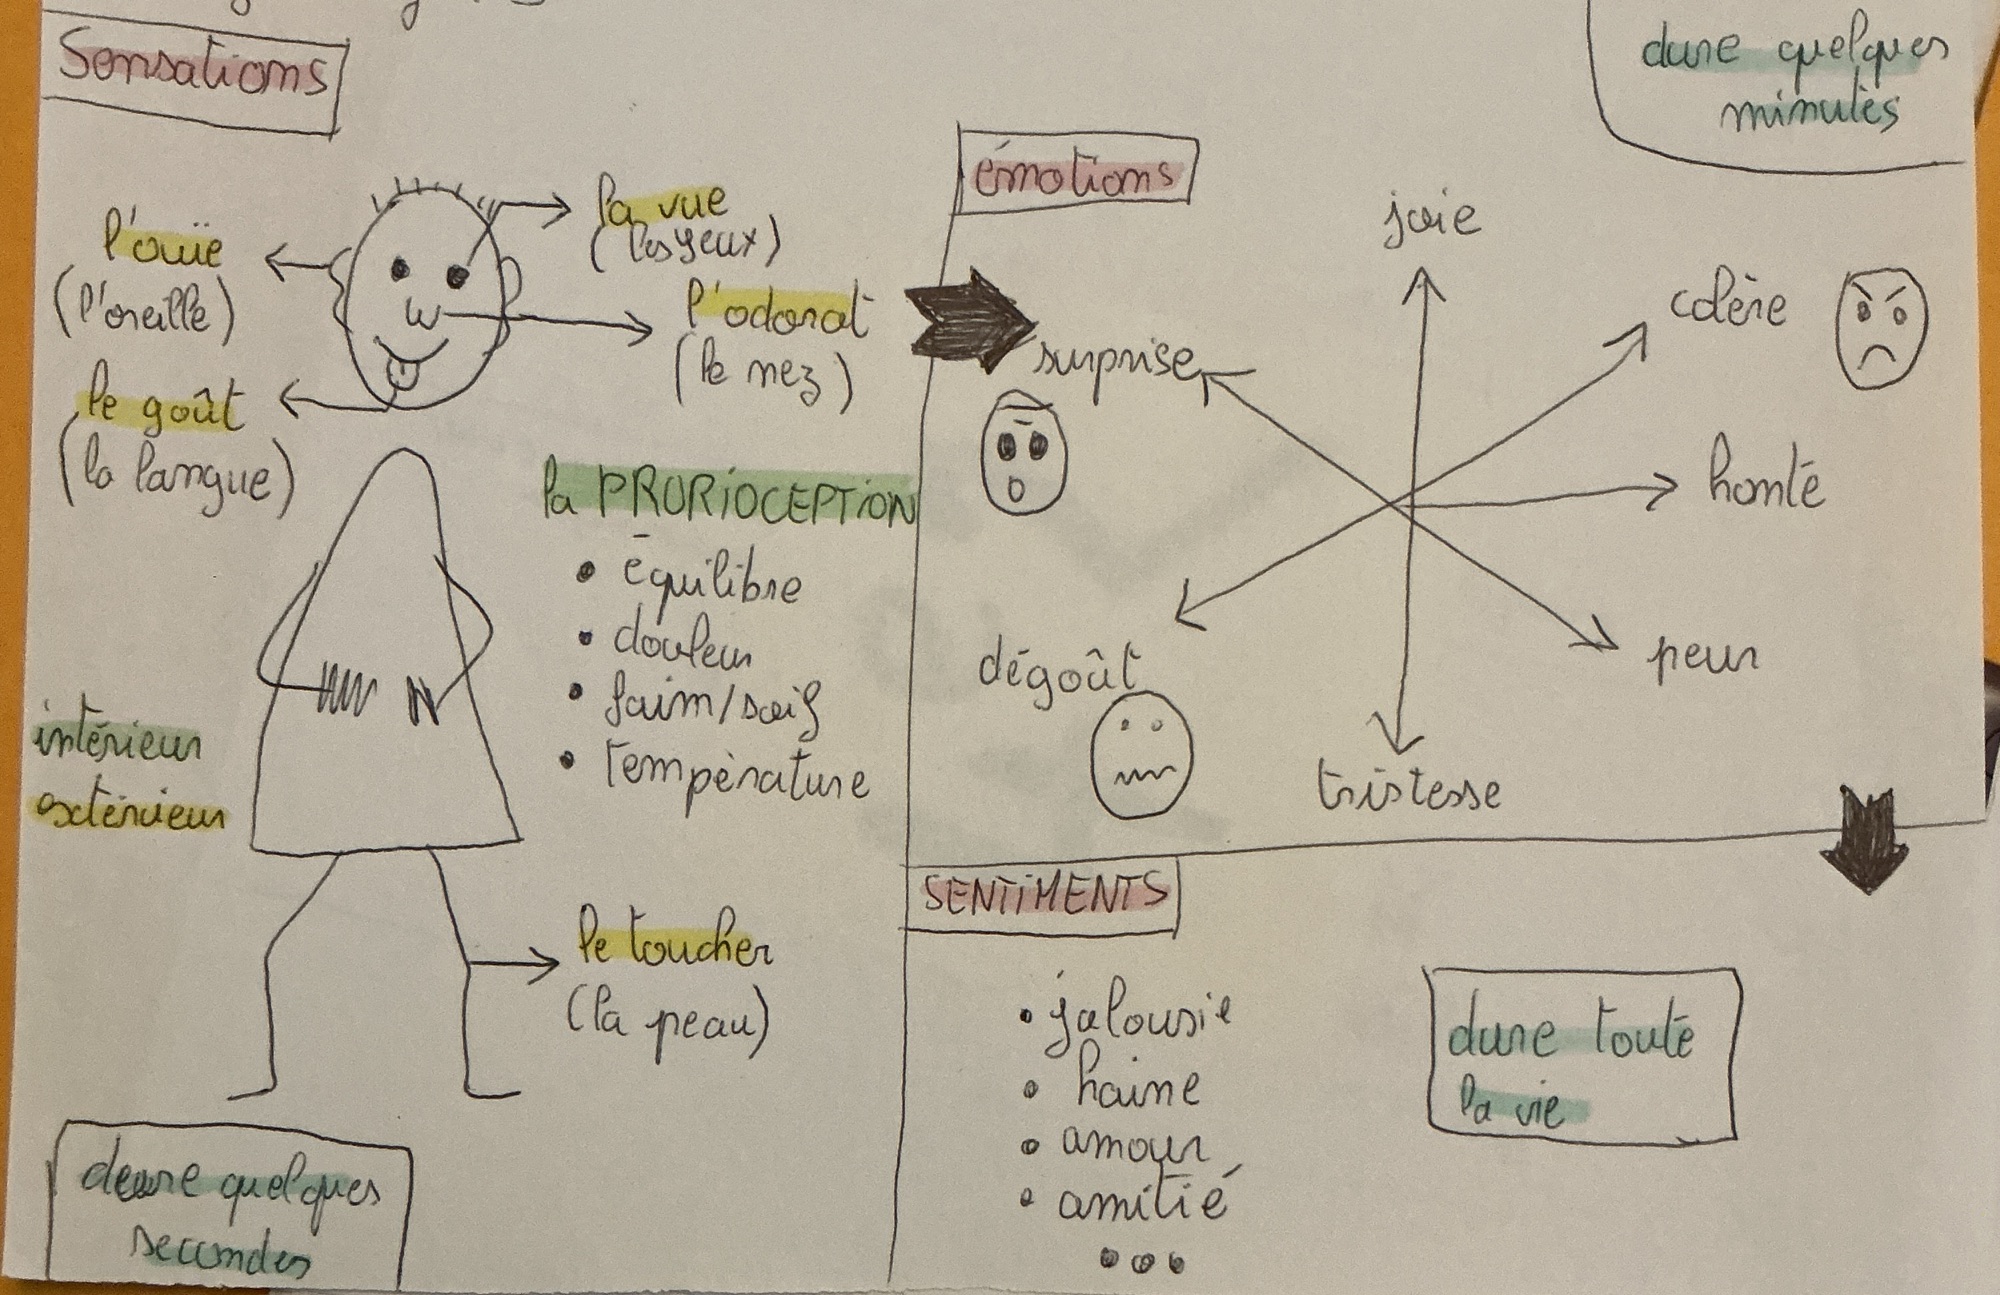 Sensations
l'ouïe
(l'oreille)
le goût
(la langue)
la vue
(les yeux)
l'odorat
(le nez)
la PRORIOCEPTION
• équilibre
• douleur
• faim/soif
• température
intérieur
extérieur
le toucher
(la peau)
dure quelques
secondes
émotions
dure quelques
minutes
joie
colère
surprise
honte
dégoût
peur
tristesse
SENTIMENTS
• jalousie
• haine
• amour
• amitié
...
dure toute
la vie